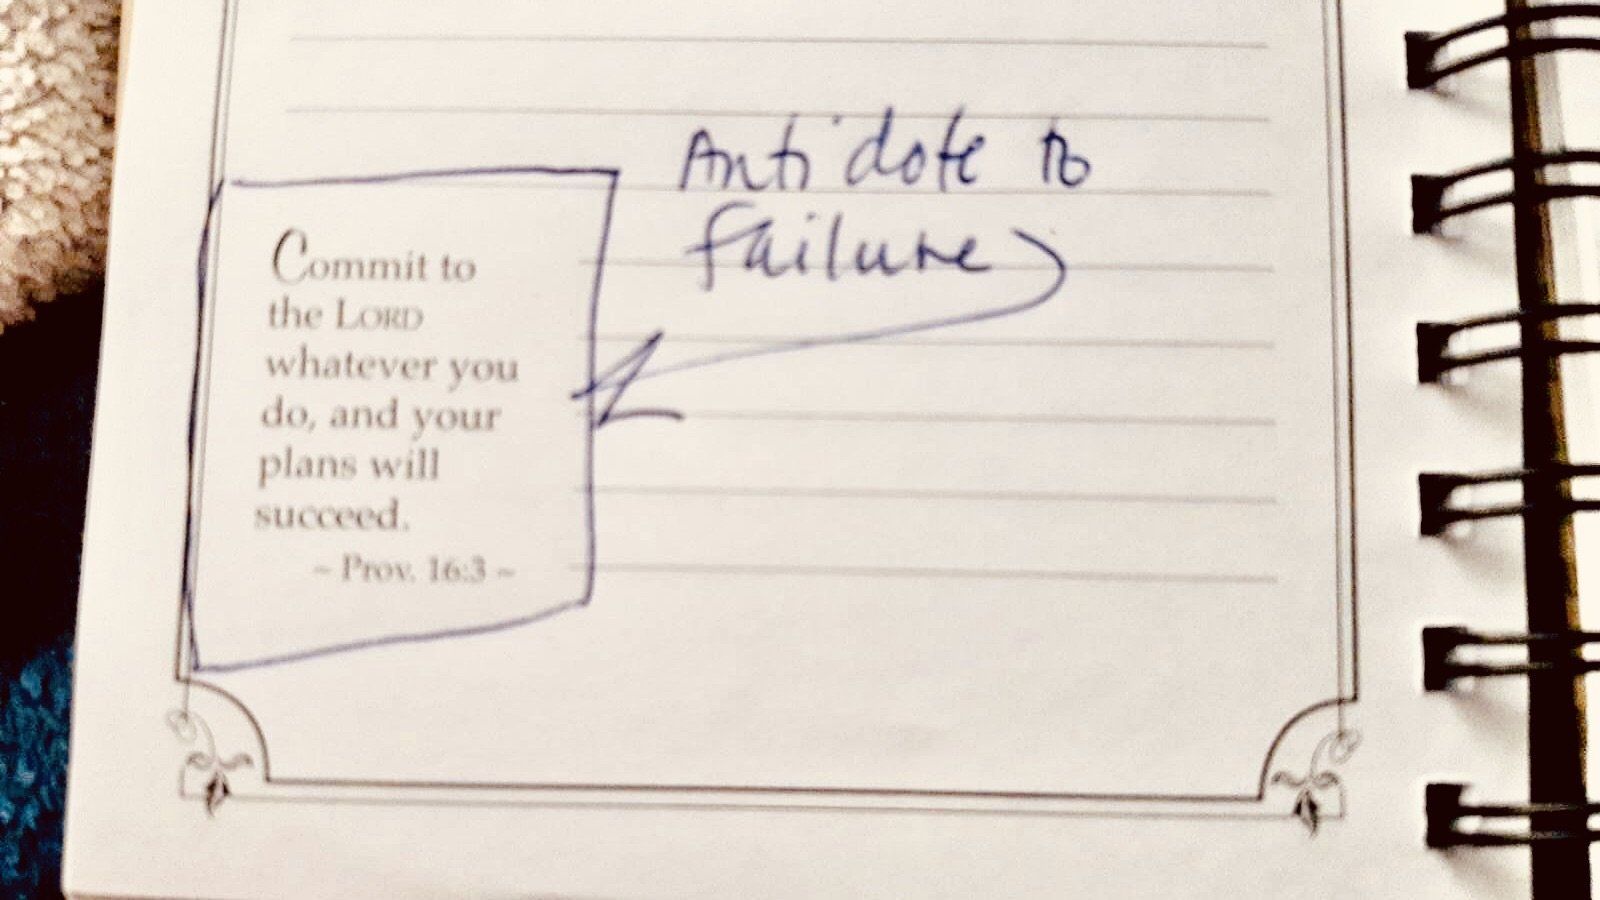 Antidote to
failure
Commit to
the LORD
whatever you
do, and your
plans will
succeed.
~ Prov. 16:3 ~